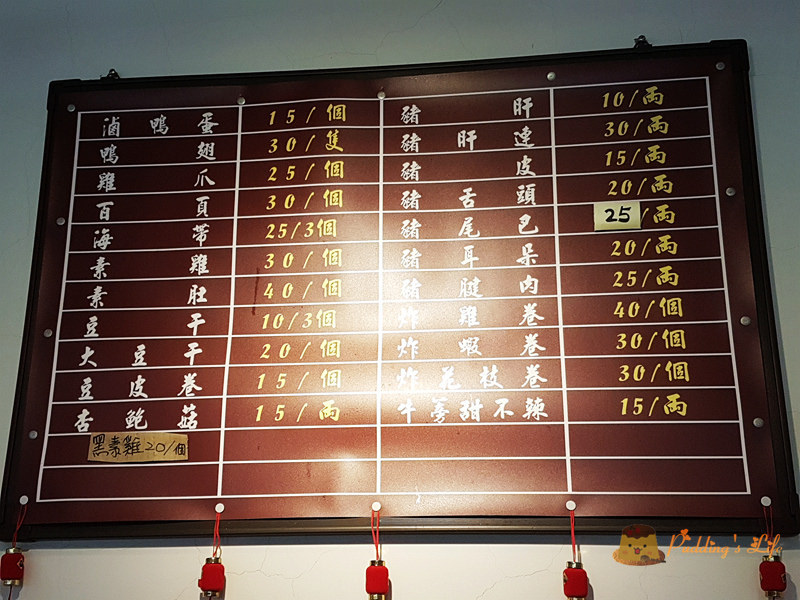 滷鴨蛋 15/個
鴨翅 30/隻
雞爪 25/個
百頁 30/個
海帶 25/3個
素雞 30/個
素肚 40/個
豆干 10/3個
大豆干 20/個
豆皮卷 15/個
杏鮑菇 15/兩
黑素雞20/個
豬肝 10/兩
豬肝連 30/兩
豬皮 15/兩
豬舌頭 20/兩
豬尾巴 25/兩
豬耳朵 20/兩
豬腱肉 25/兩
炸雞卷 40/個
炸蝦卷 30/個
炸花枝卷 30/個
牛蒡甜不辣 15/兩
Pudding's Life